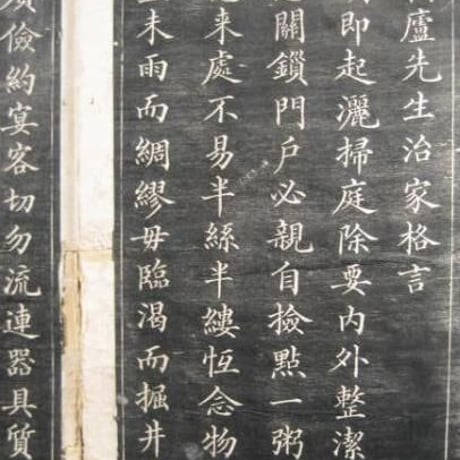 廬先生治家格言
即起灑掃庭除要內外整潔
關鎖門戶必親自撿點一粥
来處不易半絲半縷恆念物
未雨而綢繆毋臨渴而掘井
儉約宴客切勿流連器具質